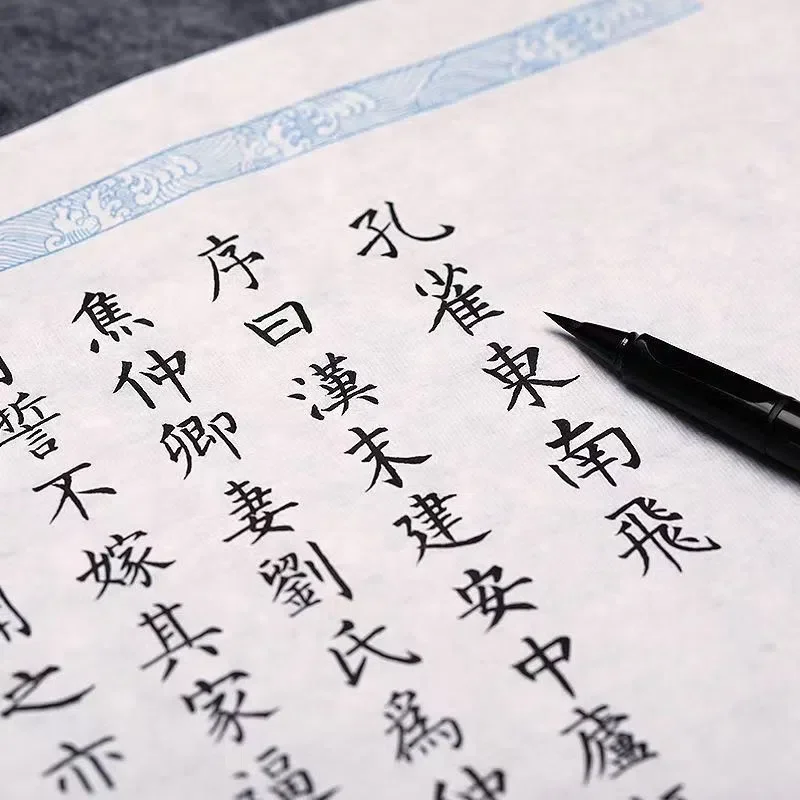 孔雀東南飛
序曰漢末建安中廬
焦仲卿妻劉氏為仲
誓不嫁其家逼
之亦